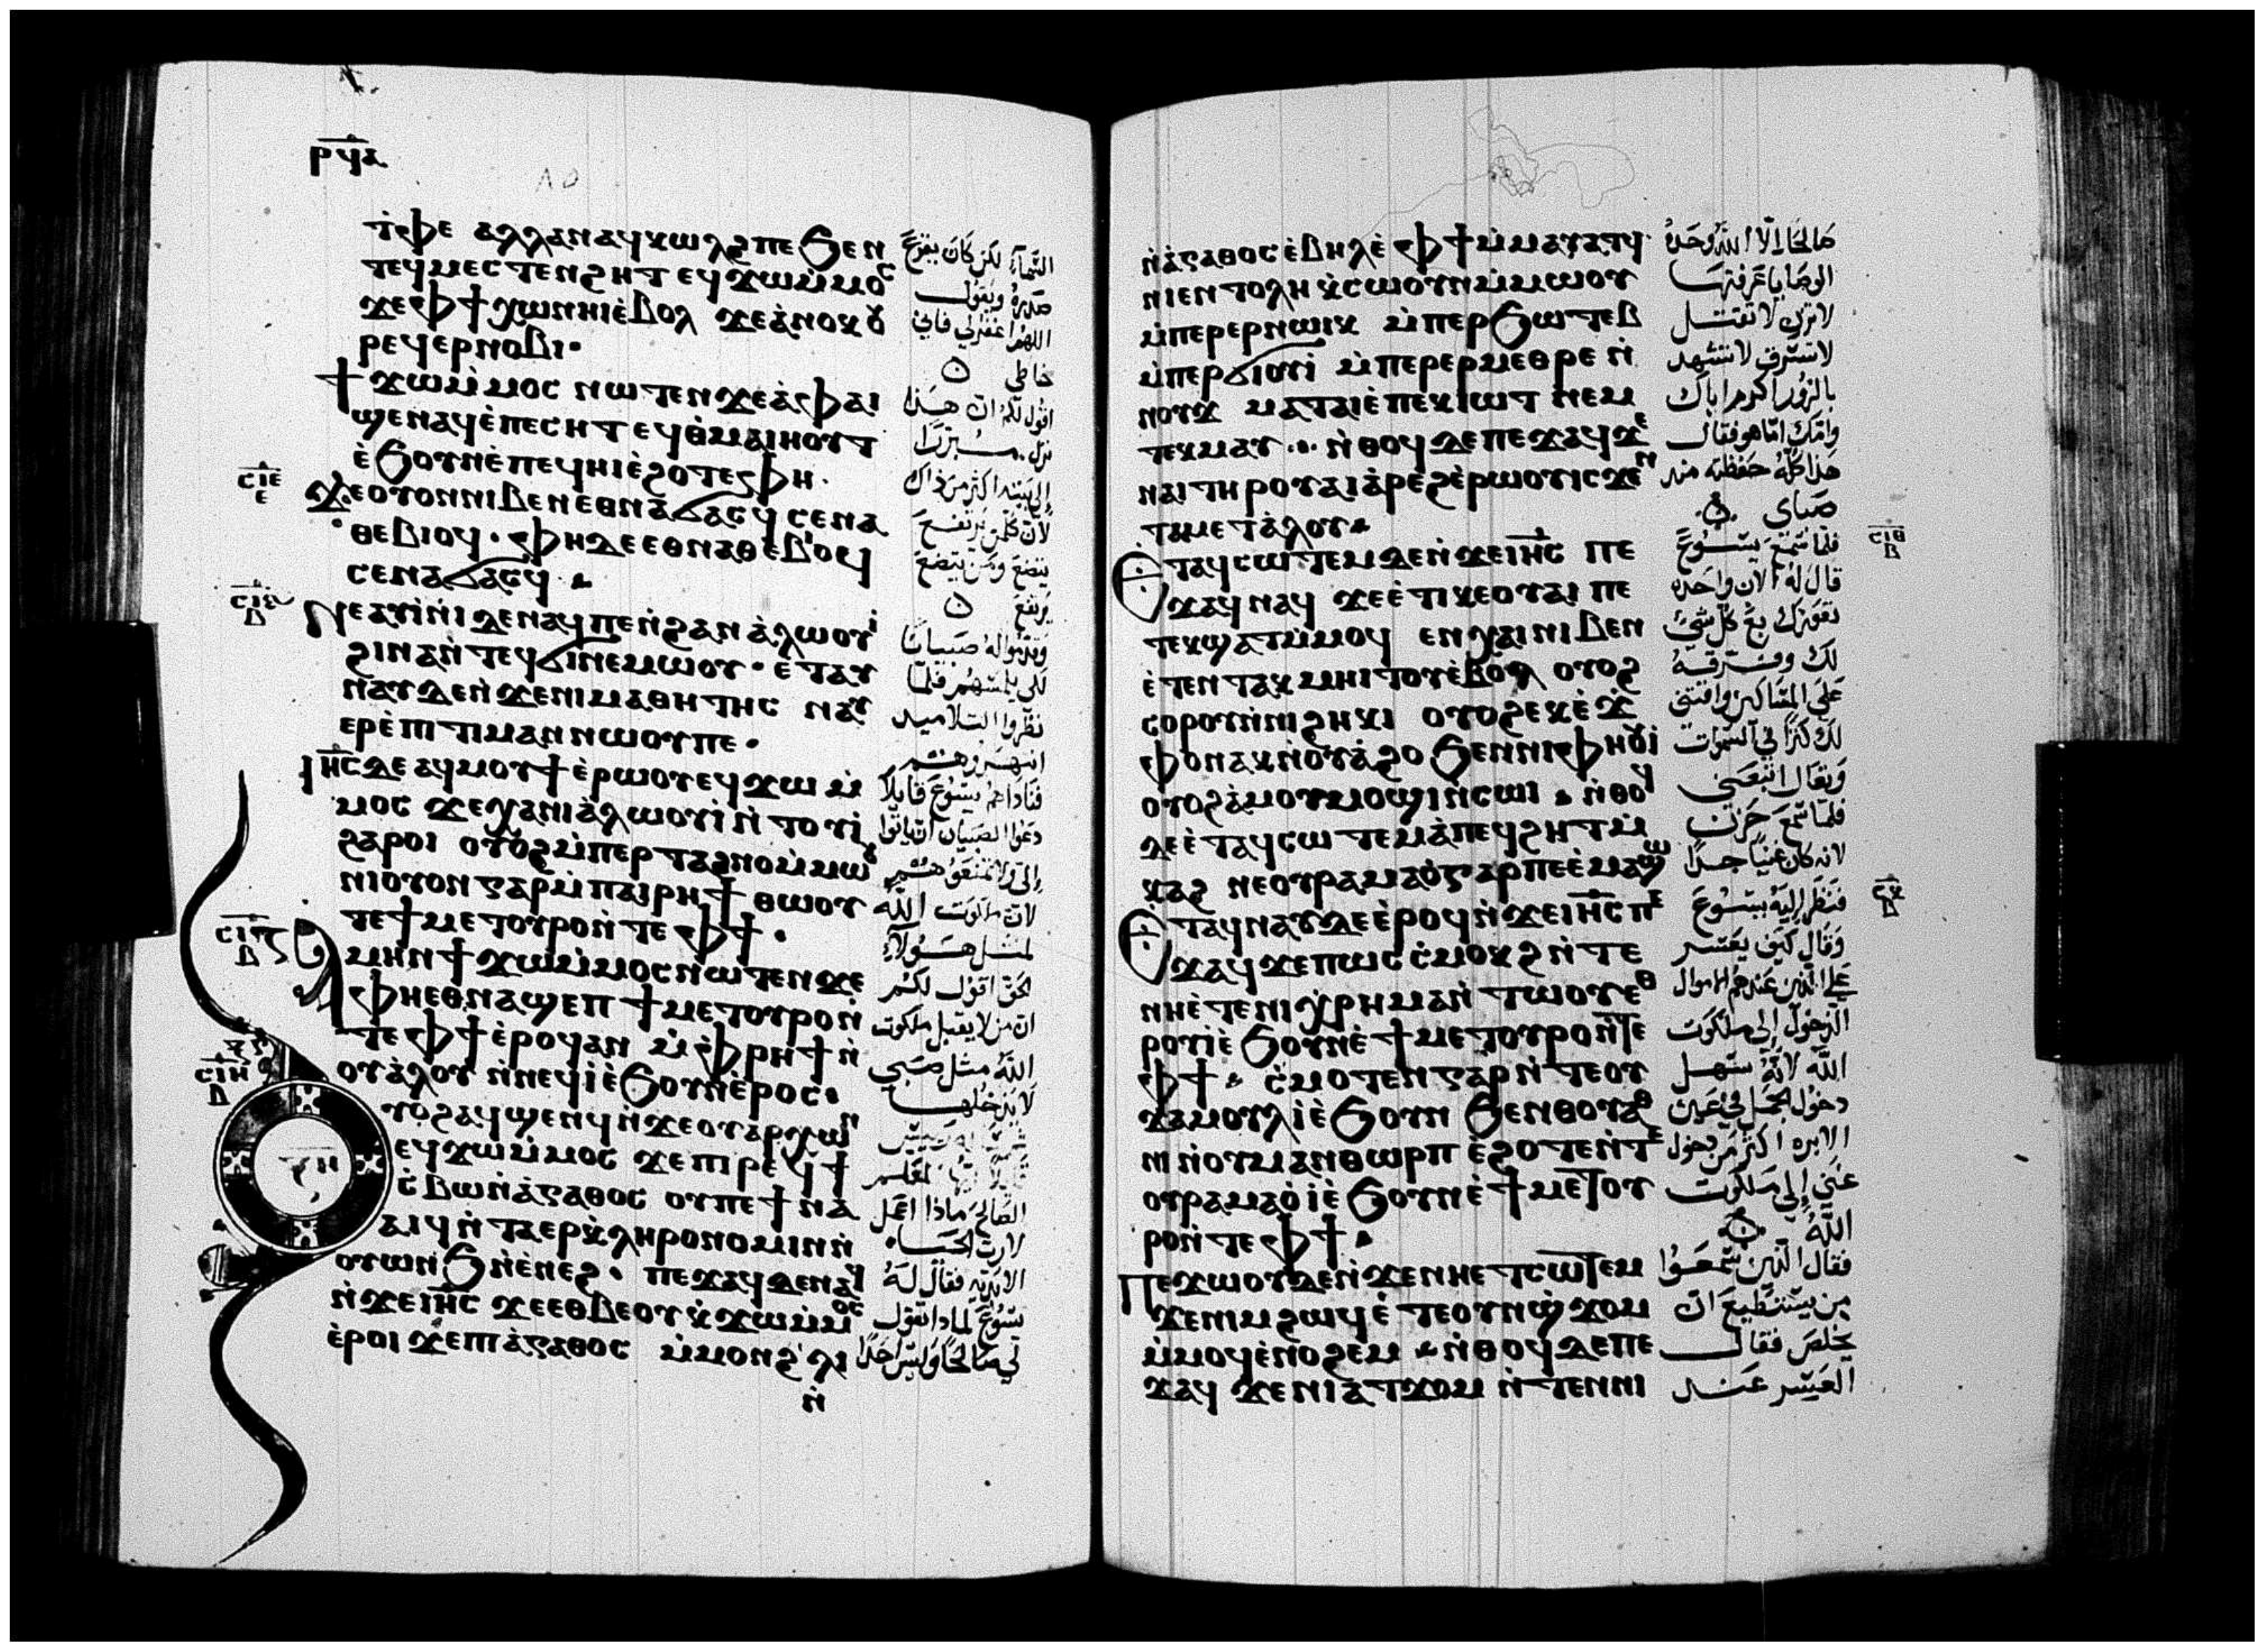 ⲣϥⲁ
ⲧ̇ⲫⲉ ⲁⲗⲗⲁⲛⲁϥⲕⲱⲗϩⲡⲉ ϧⲉⲛ
ⲧⲉϥⲙⲉⲥⲧⲉⲛϩⲏⲧ ⲉϥϫⲱⲙ̇ⲙⲟⲥ
ϫⲉⲫϯ ⲭⲱⲛⲏⲓⲉ̇ⲃⲟⲗ ϫⲉⲁ̇ⲛⲟⲕ ⲟⲩ
ⲣⲉϥⲉⲣⲛⲟⲃⲓ·
ϯϫⲱⲙ̇ⲙⲟⲥ ⲛⲱⲧⲉⲛ ϫⲉⲁ̇ⲫⲁⲓ
ϣⲉⲛⲁϥⲉ̇ⲡⲉⲥⲏⲧ ⲉϥⲑ̇ⲙⲁⲓⲏⲟⲩⲧ
ⲉ̇ϧⲟⲩⲛⲉ̇ⲡⲉϥⲏⲓⲉ̇ϩⲟⲧⲉⲫⲏ·
ⲥⲓⲉ
ⲉ
ϫⲉⲟⲩⲟⲛⲛⲓⲃⲉⲛ ⲉⲑⲛⲁϭⲁⲥϥ ⲥⲉⲛⲁ
ⲑⲉⲃⲓⲟϥ· ⲫⲏⲇⲉⲉⲑⲛⲁⲑⲉⲃⲓⲟϥ
ⲥⲉⲛⲁϭⲁⲥϥ·
ⲥⲓⲋ
ⲃ
ⲛⲉⲁⲩⲓ̇ⲛⲓⲇⲉⲛⲁϥⲡⲉⲛ̇ϩⲁⲛ ⲁ̇ⲗⲱⲟⲩⲓ
ϩⲓⲛⲁⲛ̇ⲧⲉϥϭⲓⲛⲉⲙⲱⲟⲩ· ⲉⲧⲁⲩ
ⲛⲁⲩⲇⲉⲛ̇ϫⲉⲛⲓⲙⲁⲑⲏⲧⲏⲥ ⲛⲁⲩ
ⲉⲣⲉ̇ⲡⲓⲧⲓⲙⲁⲛ ⲛⲱⲟⲩⲡⲉ·
ⲓⲏⲥⲇⲉ ⲁϥⲙⲟⲩϯⲉ̇ⲣⲱⲟⲩⲉϥϫⲱ ⲙ̇
ⲙⲟⲥ ϫⲉⲭⲁⲛⲓⲁ̇ⲗⲱⲟⲩⲓ̇ ⲛ̇ⲧⲟⲩⲓ̇
ϩⲁⲣⲟⲓ ⲟⲩⲟϩⲙ̇ⲡⲉⲣⲧⲁϩⲛⲟⲙ̇ⲙⲱⲟⲩ
ⲛⲓⲟⲩⲟⲛ ⲅⲁⲣⲙ̇ⲡⲁⲓⲣⲏϯ ⲑⲱⲟⲩ
ⲧⲉϯⲙⲉⲧⲟⲩⲣⲟⲛ̇ⲧⲉⲫϯ·
ⲥⲓⲍ
ⲃ
ⲁⲙⲏⲛϯϫⲱⲙ̇ⲙⲟⲥⲛⲱⲧⲉⲛϫⲉ
ⲫⲏⲉⲑⲛⲁϣⲉⲡ ϯⲙⲉⲧⲟⲩⲣⲟⲛ̇
ⲧⲉⲫϯ ⲉ̇ⲣⲟϥⲁⲛ ⲙ̇ⲫⲣⲏϯⲛ̇
ⲟⲩⲁ̇ⲗⲟⲩ ⲛ̇ⲛⲉϥⲓ̇ⲉ̇ϧⲟⲩⲛⲉ̇ⲣⲟⲥ·
ⲥⲓⲏ
ⲃ
ⲟⲩⲟϩⲁϥϣⲉⲛϥⲛ̇ϫⲉⲟⲩⲁⲣⲭⲱⲛ
ⲉϥϫⲱⲙ̇ⲙⲟⲥ ϫⲉⲡⲓⲣⲉϥϯ
ⲥ̇ⲃⲱⲛ̇ⲁ̇ⲅⲁⲑⲟⲥ ⲟⲩⲡⲉϯⲛⲁ
ⲁⲓϥⲛ̇ⲧⲁⲉⲣⲕ̇ⲗⲏⲣⲟⲛⲟⲙⲓⲛⲛ̇
ⲟⲩⲱⲛϧ ⲛ̇ⲉ̇ⲛⲉϩ· ⲡⲉϫⲁϥⲇⲉⲛⲁϥ
ⲛ̇ϫⲉⲓⲏⲥ ϫⲉⲉⲑⲃⲉⲟⲩ ⲕ̇ϫⲱⲙ̇ⲙⲟⲥ
ⲉ̇ⲣⲟⲓ ϫⲉⲡⲓⲁ̇ⲅⲁⲑⲟⲥ ⲙ̇ⲙⲟⲛϩ̇ⲗⲓ
ⲛ̇
السماء لكن كان يقرع
صدره ويقول
اللهم اغفر لي فاني
خاطي
اقول لكم ان هذا
نزل مبررا
الى بيته اكثر من ذاك
لان كل من يرتفع
يتضع ومن يتضع
يرتفع
وقدموا له صبيانا
لكي يلمسهم فلما
نظروا التلاميذ
انتهروهم
فناداهم يسوع قايلا
دعوا الصبيان ان ياتوا
الي ولا تمنعوهم
لان ملكوت الله
لمثل هولاء
الحق اقول لكم
ان من لا يقبل ملكوت
الله مثل صبي
لا يدخلها
الصالح ماذا اعمل
لارث الحياه
الابديه فقال له
يسوع لماذا تقول
لي صالحا وليس احدا
ⲛ̇ⲁ̇ⲅⲁⲑⲟⲥ ⲉ̇ⲃⲏⲗⲉ̇ ⲫϯⲙ̇ⲙⲁⲩⲁⲧϥ·
ⲛⲓⲉⲛⲧⲟⲗⲏ ⲕ̇ⲥⲱⲟⲩⲛⲙ̇ⲙⲱⲟⲩ
ⲙ̇ⲡⲉⲣⲉⲣⲛⲱⲓⲕ ⲙ̇ⲡⲉⲣϧⲱⲧⲉⲃ
ⲙ̇ⲡⲉⲣϭⲓⲟⲩⲓ̇ ⲙ̇ⲡⲉⲣⲉⲣⲙⲉⲑⲣⲉ ⲛ̇
ⲛⲟⲩϫ ⲙⲁⲧⲁⲓⲉ̇ⲡⲉⲕⲓⲱⲧ ⲛⲉⲙ
ⲧⲉⲕⲙⲁⲩ·· ⲛ̇ⲑⲟϥⲇⲉⲡⲉϫⲁϥϫⲉ
ⲛⲁⲓⲧⲏⲣⲟⲩⲁⲓⲁ̇ⲣⲉϩⲉ̇ⲣⲱⲟⲩⲓⲥϫⲉⲛ
ⲧⲁⲙⲉⲧⲁ̇ⲗⲟⲩ·
ⲥⲓⲑ
ⲃ
ⲉⲧⲁϥⲥⲱⲧⲉⲙⲇⲉⲛ̇ϫⲉⲓⲏⲥ ⲡⲉ
ϫⲁϥⲛⲁϥ ϫⲉⲉ̇ⲧⲓⲕⲉⲟⲩⲁⲓ ⲡⲉ
ⲧⲉⲕϣⲁⲧⲙ̇ⲙⲟϥ ⲉⲛⲭⲁⲓⲛⲓⲃⲉⲛ
ⲉ̇ⲧⲉⲛⲧⲁⲕ ⲙⲏⲓⲧⲟⲩⲉ̇ⲃⲟⲗ ⲟⲩⲟϩ
ⲥⲟⲣⲟⲩⲛ̇ⲛⲓϩⲏⲕⲓ ⲟⲩⲟϩⲉⲕⲉ̇ϫ̇
ⲫⲟⲛⲁⲕⲛ̇ⲟⲩⲁ̇ϩⲟ ϧⲉⲛⲛⲓⲫⲏⲟⲩⲓ
ⲟⲩⲟϩⲁ̇ⲙⲟⲩⲙⲟϣⲓⲛ̇ⲥⲱⲓ· ⲛ̇ⲑⲟϥ
ⲇⲉⲉ̇ⲧⲁϥⲥⲱⲧⲉⲙⲁ̇ⲡⲉϥϩⲏⲧⲙ̇
ⲕⲁϩ ⲛⲉⲟⲩⲣⲁⲙⲁⲟ̇ⲅⲁⲣⲡⲉⲉ̇ⲙⲁϣⲱ
ⲥⲕ
ⲃ
ⲉⲧⲁϥⲛⲁⲩⲇⲉⲉ̇ⲣⲟϥⲛ̇ϫⲉⲓⲏⲥⲡⲉ
ϫⲁϥ ϫⲉⲡⲱⲥ ⲥ̇ⲙⲟⲕϩⲛ̇ⲧⲉ
ⲛⲏⲉ̇ⲧⲉⲛⲓⲭ̇ⲣⲏⲙⲁⲛ̇ⲧⲱⲟⲩⲉⲑ
ⲣⲟⲩⲓ̇ⲉ̇ϧⲟⲩⲛⲉ̇ϯⲙⲉⲧⲟⲩⲣⲟⲛ̇ⲧⲉ
ⲫϯ· ⲥ̇ⲙⲟⲧⲉⲛⲅⲁⲣⲛ̇ⲧⲉⲟⲩ
ϫⲁⲙⲟⲩⲗⲓ̇ⲉ̇ϧⲟⲩⲛ ϧⲉⲛⲑⲟⲩⲁⲑ
ⲛ̇ⲛⲟⲩⲙⲁⲛⲑⲱⲣⲡ ⲉ̇ϩⲟⲧⲉⲛ̇ⲧⲉ
ⲟⲩⲣⲁⲙⲁⲟ̇ⲓ̇ⲉ̇ϧⲟⲩⲛⲉ̇ϯⲙⲉⲧⲟⲩ
ⲣⲟⲛ̇ⲧⲉⲫϯ·
ⲡⲉϫⲱⲟⲩⲇⲉⲛ̇ϫⲉⲛⲏⲉⲧⲥⲱⲧⲉⲙ
ϫⲉⲛⲓⲙϩⲱϥⲉ̇ⲧⲉⲟⲩⲛϣ̇ϫⲟⲙ
ⲙ̇ⲙⲟϥⲉ̇ⲛⲟϩⲉⲙ· ⲛ̇ⲑⲟϥⲇⲉⲡⲉ
ϫⲁϥ ϫⲉⲛⲓⲁⲧϫⲟⲙ ⲛ̇ⲧⲉⲛⲛⲓ
صالحا الا الله وحده
الوصايا عرفتها
لا تزن لا تقتل
لا تسرق لا تشهد
بالزور اكرم اباك
وامك اما هو فقال
هذا كله حفظته منذ
صباي
فلما سمع يسوع
قال له الان واحده
تعوزك بع كل شيء
لك وفرقه
على المساكين واقتني
لك كنزا في السموات
وتعال اتبعني
فلما سمع حزن
لانه كان غنيا جدا
فنظر اليه يسوع
وقال كيف يعسر
على الذين عندهم الاموال
الدخول الى ملكوت
الله لانه سهل
دخول الجمل في عين
الابره اكثر من دخول
غني الى ملكوت
الله
فقال الذين سمعوا
من يستطيع ان
يخلص فقال
العسر عند